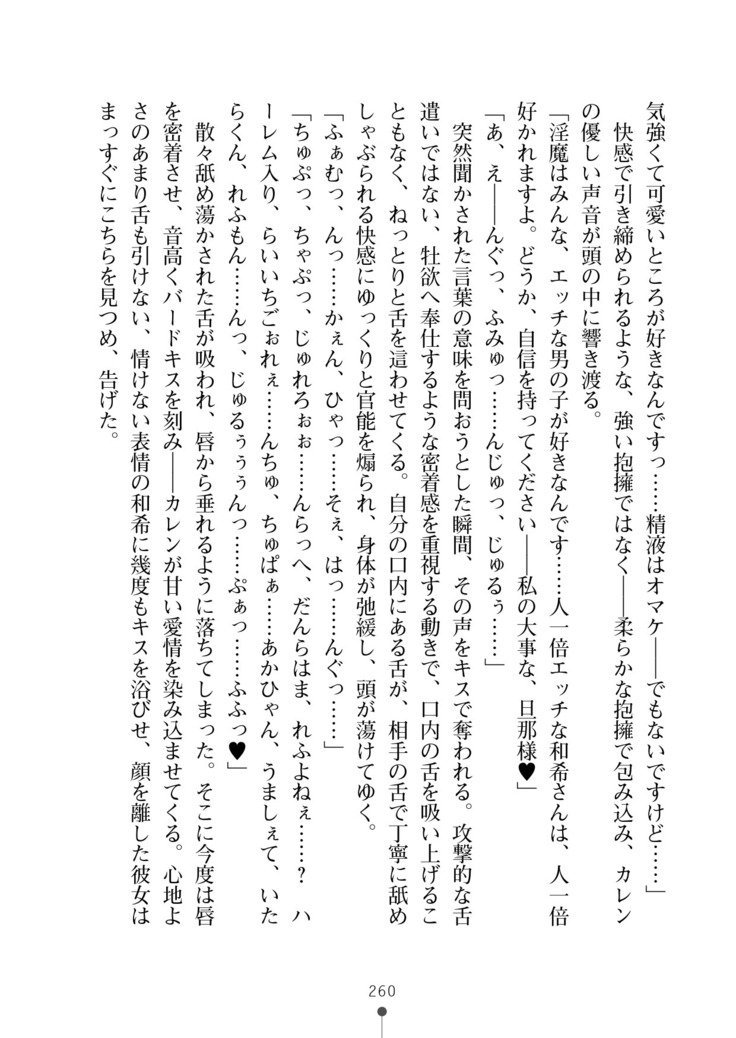 気強くて可愛いところが好きなんですっ……精液はオマケ――でもないですけど……」
　快感で引き締められるような、強い抱擁ではなく――柔らかな抱擁で包み込み、カレン
の優しい声音が頭の中に響き渡る。
「淫魔はみんな、エッチな男の子が好きなんです……人一倍エッチな和希さんは、人一倍
好かれますよ。どうか、自信を持ってください――私の大事な、旦那様♥」
「あ、え――んぐっ、ふみゅっ……んじゅっ、じゅるぅ……」
　突然聞かされた言葉の意味を問おうとした瞬間、その声をキスで奪われる。攻撃的な舌
遣いではない、牡欲へ奉仕するような密着感を重視する動きで、口内の舌を吸い上げるこ
ともなく、ねっとりと舌を這わせてくる。自分の口内にある舌が、相手の舌で丁寧に舐め
しゃぶられる快感にゆっくりと官能を煽られ、身体が弛緩し、頭が蕩けてゆく。
「ふぁむっ、んっ……かぇん、ひゃっ……そぇ、はっ……んぐっ……」
「ちゅぷっ、ちゃぷっ、じゅれろぉぉ……んらっへ、だんらはま、れふよねぇ……？　ハ
ーレム入り、らいいちごぉれぇ……んちゅ、ちゅぱぁ……あかひゃん、うましぇて、いた
らくん、れふもん……んっ、じゅるぅぅぅんっ……ぷぁっ……ふふっ♥」
　散々舐め蕩かされた舌が吸われ、唇から垂れるように落ちてしまった。そこに今度は唇
を密着させ、音高くバードキスを刻み――カレンが甘い愛情を染み込ませてくる。心地よ
さのあまり舌も引けない、情けない表情の和希に幾度もキスを浴びせ、顔を離した彼女は
まっすぐにこちらを見つめ、告げた。
260